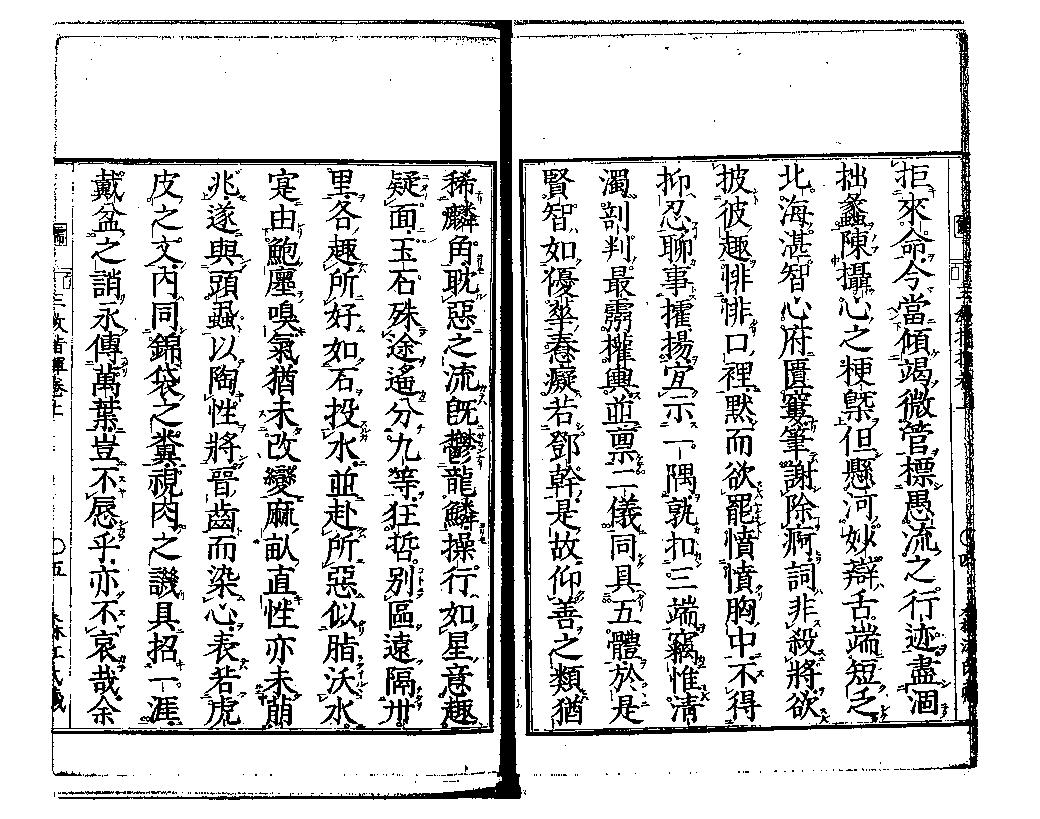 拒來命今當傾竭微管標愚流之行迹盡涸
拙蠡陳攝心之梗槩但懸河妙辯舌端短乏
北海湛智心府匱窶筆謝除痾詞非殺將欲
披彼趣悱悱口裡默而欲罷憤憤胸中不得
抑忍聊事攉揚宜示一隅孰扣三端竊惟淸
濁剖判最靈權輿並禀二儀同具五體於是
賢智如優華惷癡若鄧幹是故仰善之類猶
稀麟角耽惡之流旣鬱龍鱗操行如星意趣
疑面玉石殊途遙分九等狂哲别區遠隔卅
里各趣所好如石投水並赴所惡似脂沃水
寔由鮑廛嗅氣猶未改變麻畝直性亦未萠
兆遂與頭蝨以陶性將晉齒而染心表若虎
皮之文內同錦袋之糞視肉之譏具招一涯
戴盆之誚永傳萬葉豈不辱乎亦不哀哉余